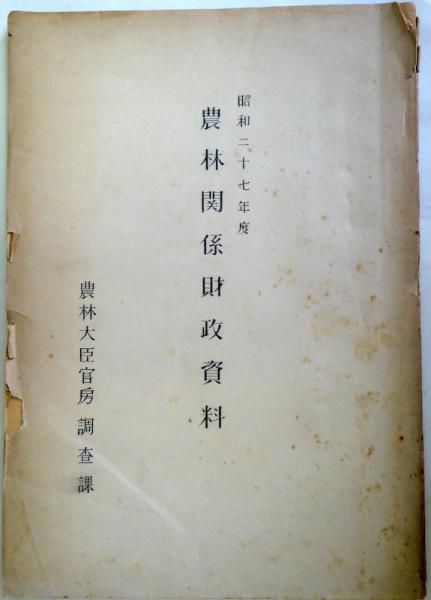 昭和二十七年度
農林関係財政資料
農林大臣官房調査課